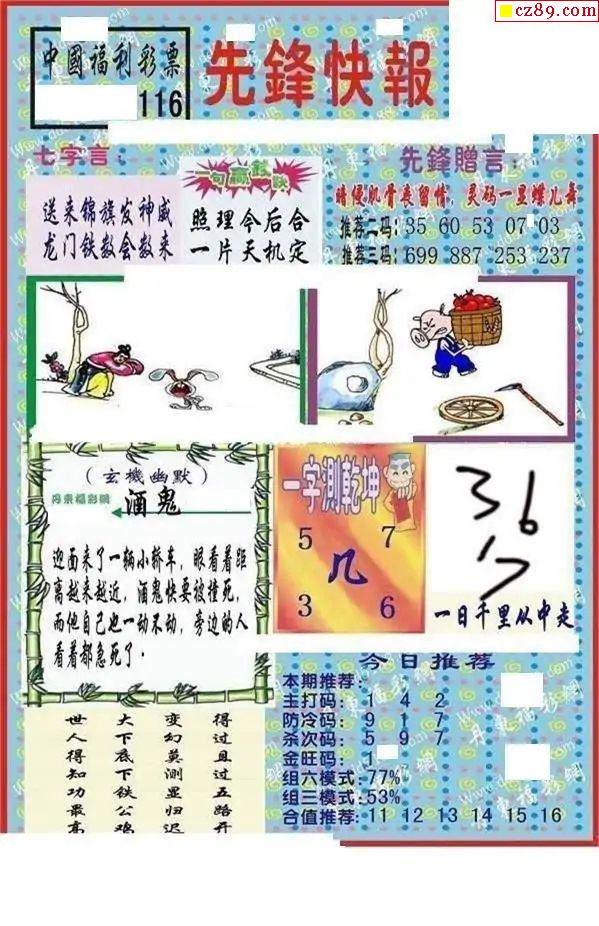 cz89.com
中國福利彩票
116
先鋒快報
七字言：
送来锦旗发神威
龙门铁数会数来
一句贏錢訣
照理今后合
一片天机定
先鋒贈言：
暗侵肌骨丧留情，灵码一显蝶儿舞
推荐二码：35 60 53 07 03
推荐三码：699 887 253 237
（玄機幽默）
丹東福彩網
酒鬼
迎面来了一辆小轿车，眼看着距
离越来越近，酒鬼快要被撞死，
而他自己也一动不动，旁边的人
看着都急死了。
一字測乾坤
5 7
几
3 6
36
17
一日千里从中走
今日推荐
本期推荐：
主打码： 1 4 2
防冷码： 9 1 7
杀次码： 5 9 7
金旺码： 1
组六模式：77%
组三模式：53%
合值推荐：11 12 13 14 15 16
世人得知功最高
大下底下铁公鸡
变幻莫测显归迟
得过且过五路开